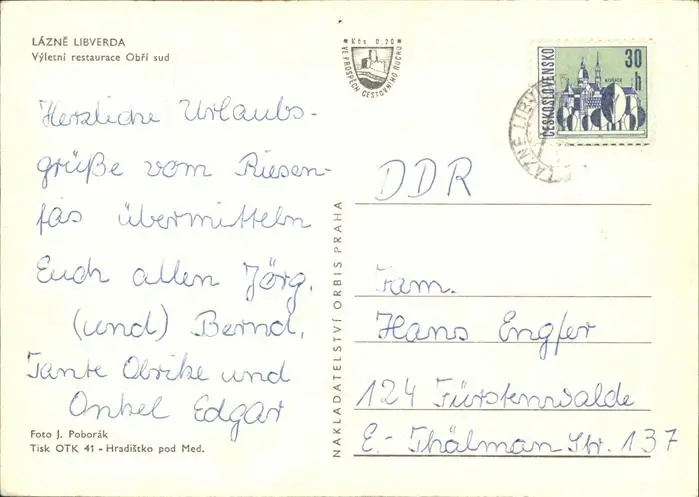 LÁZNĚ LIBVERDA
Výletní restaurace Obří sud
Herzliche Urlaubs-
grüße vom Riesen-
fas übermitteln
Euch allen Jörg,
(und) Bernd,
Tante Ulrike und
Onkel Edgar
Foto J. Poborák
Tisk OTK 41 - Hradištko pod Med.
NAKLADATELSTVÍ ORBIS PRAHA
Kčs 0,20
VE PROSPĚCH CESTOVNÍHO RUCHU
ČESKOSLOVENSKO
30
h
LÁZNĚ LIBV
DDR
Fam.
Hans Engfer
124 Fürstenwalde
E.-Thälman Str. 137